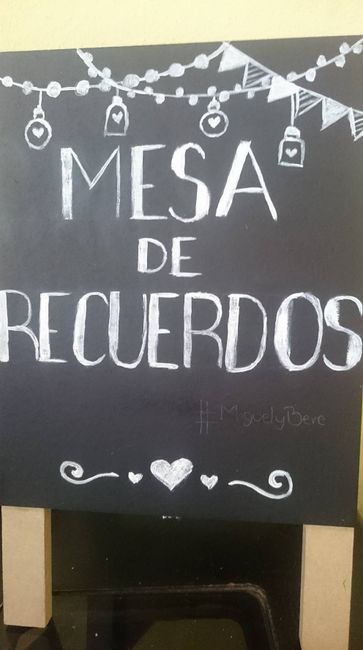 MESA
DE
RECUERDOS
#MiguelyBere